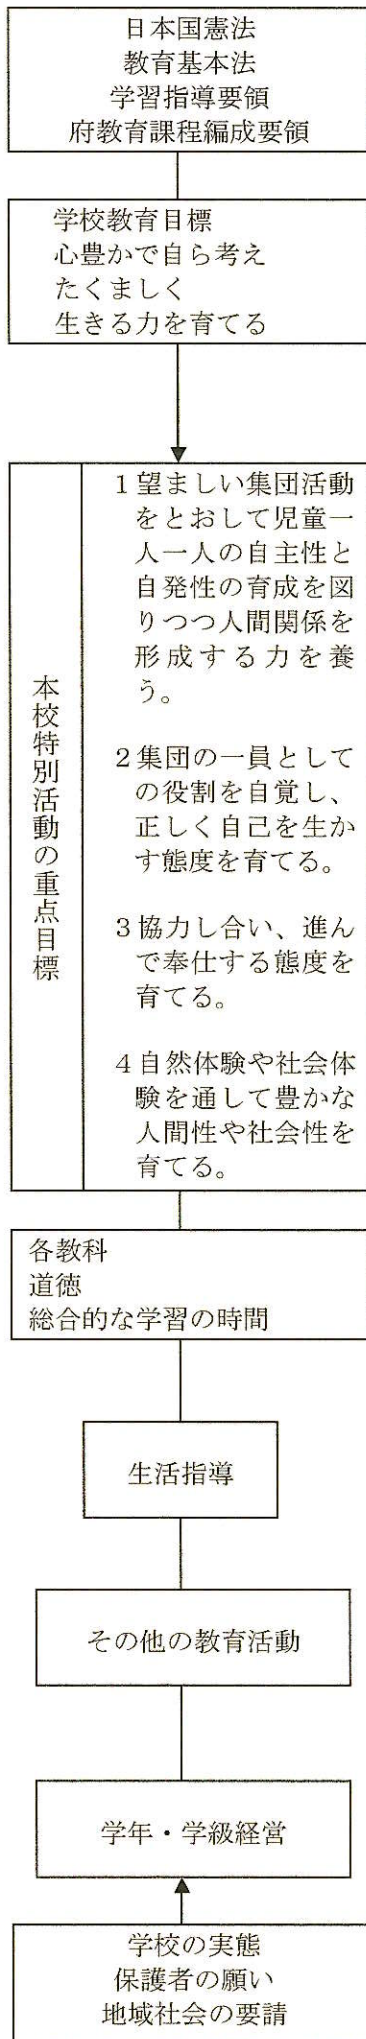 日本国憲法
教育基本法
学習指導要領
府教育課程編成要領
学校教育目標
心豊かで自ら考え
たくましく
生きる力を育てる
本校特別活動の重点目標
1 望ましい集団活動
をとおして児童一
人一人の自主性と
自発性の育成を図
りつつ人間関係を
形成する力を養
う。
2 集団の一員として
の役割を自覚し、
正しく自己を生か
す態度を育てる。
3 協力し合い、進ん
で奉仕する態度を
育てる。
4 自然体験や社会体
験を通して豊かな
人間性や社会性を
育てる。
各教科
道徳
総合的な学習の時間
生活指導
その他の教育活動
学年・学級経営
学校の実態
保護者の願い
地域社会の要請